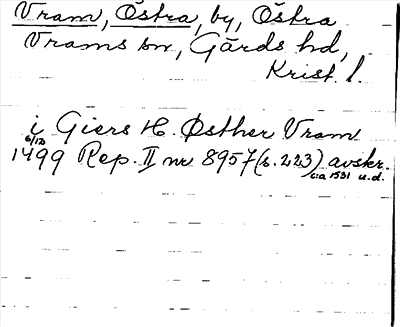 Vram, Östra, by, Östra
Vrams sn, Gärds hd,
Krist. l.
i Giers H. Østher Vram
6/12
1499 Rep. II nr 8957 (s. 223) avskr.
ca 1531 u.d.